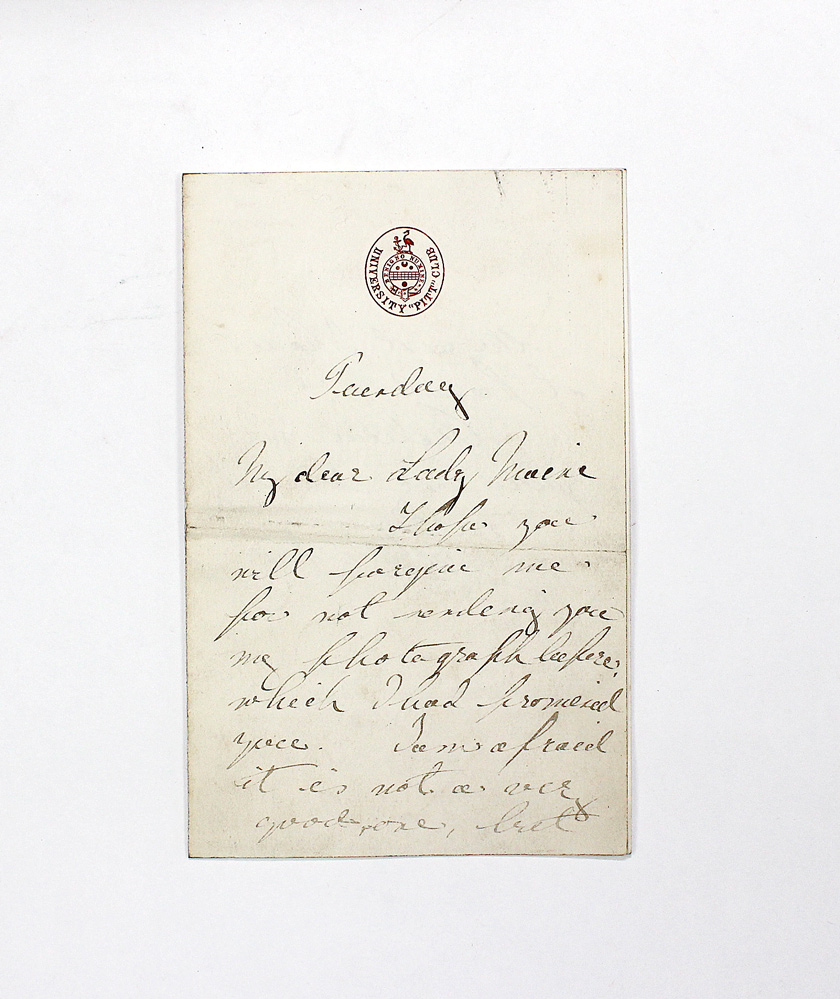 UNIVERSITY "PITT" CLUB
BENIGNO NUMINE
Tuesday
My dear Lady Maine
I hope you
will forgive me
for not sending you
my photograph before,
which I had promised
you. I am afraid
it is not a very
good one, but